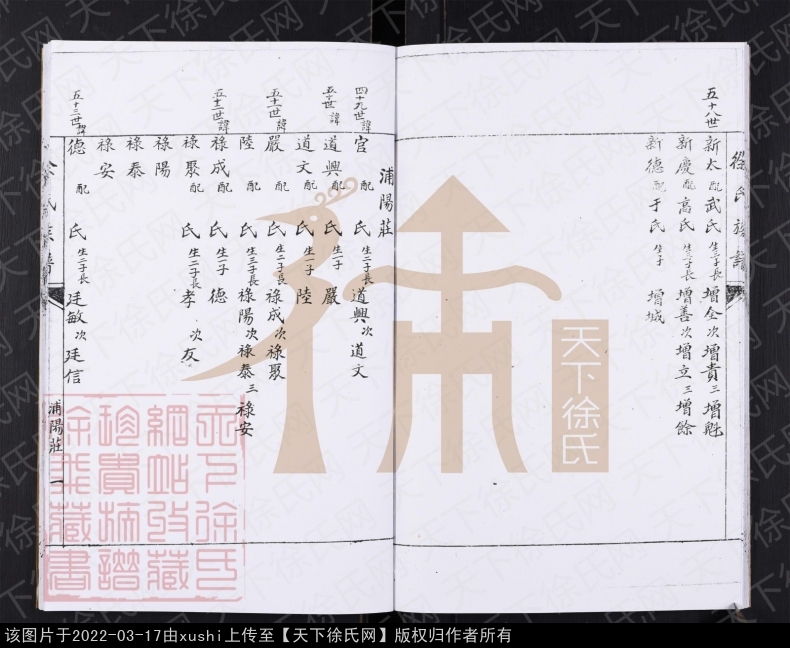 徐氏族譜
五十八世 新太 配 武氏 生三子長 增全 次 增貴 三 增魁
新慶 配 高氏 生三子長 增善 次 增立 三 增餘
新德 配 于氏 生一子 增城
浦陽莊
四十九世諱 官 配 氏 生二子長 道興 次 道文
五十世諱 道興 配 氏 生一子 嚴
道文 配 氏 生一子 陸
五十一世諱 嚴 配 氏 生二子長 祿成 次 祿聚
陸 配 氏 生三子長 祿陽 次 祿泰 三 祿安
五十二世諱 祿成 配 氏 生一子 德
祿聚 配 氏 生二子長 孝 次 友
祿陽
祿泰
祿安
五十三世諱 德 配 氏 生二子長 廷敏 次 廷信
氏族譜 浦陽莊 一
天下徐氏
天下徐氏
網站收藏
珍貴族譜
藏書
天下徐氏网
该图片于2022-03-17由xushi上传至【天下徐氏网】版权归作者所有